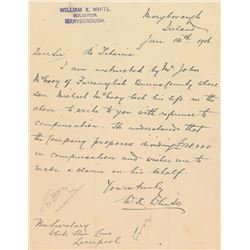 WILLIAM X. WHITE,
SOLICITOR,
MARYBOROUGH.
Maryborough
Ireland
Jan 14th 1916
Dear Sir Re Titanic
I am instructed by Mr John
McEvoy of Queens County whose
son Michael McEvoy lost his life in the
above to write to you with reference to
compensation. He understands that
the Company proposes dividing
in compensation and wishes me
to make a claim on his behalf.
Yours truly
W X White
The Secretary
White Star Line
Liverpool